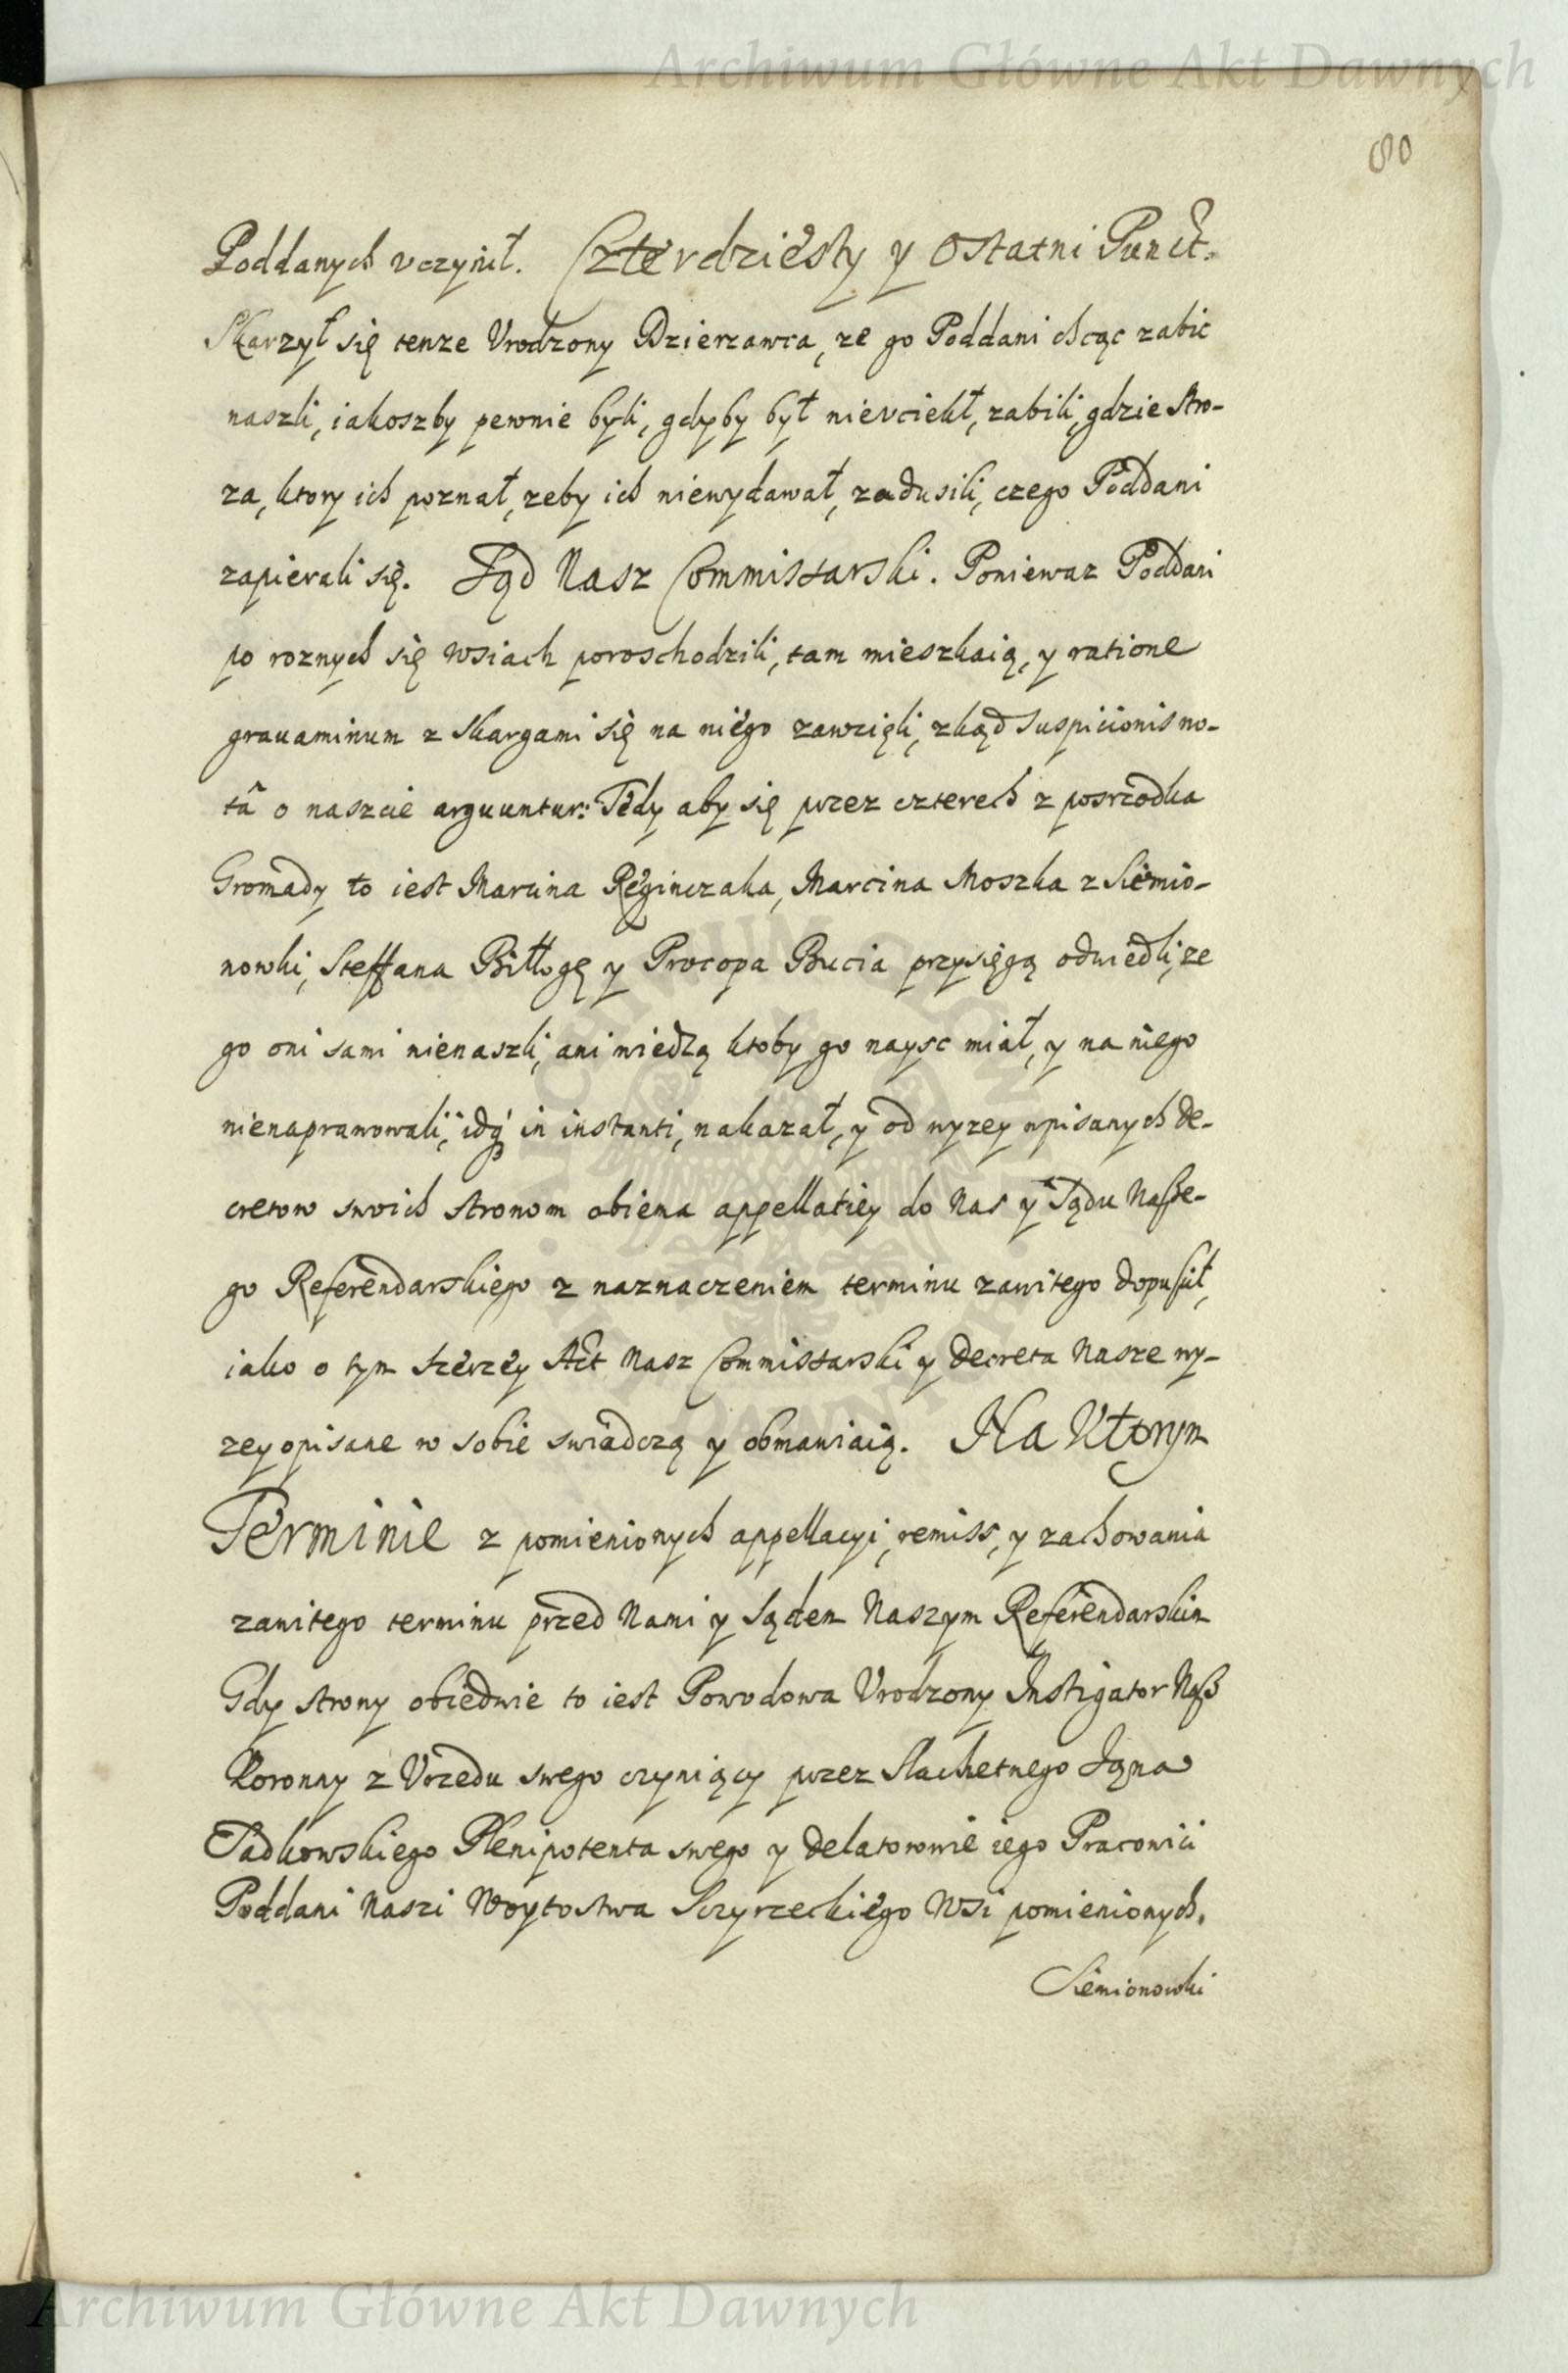 Archiwum Główne Akt Dawnych
80
Poddanych vczynił. Czterdziesty y Ostatni Punct.
Skarzył się tenze Vrodzony Dzierzawca, ze go Poddani chcąc zabic
naszli, iakoszby pewnie byli, gdyby był nievciekł, zabili, gdzie stro-
za, ktory ich poznał, zeby ich niewydawał, zadusili, czego Poddani
zapierali się. Sąd Nasz Commissarski. Poniewaz Poddani
po roznych się wsiach poroschodzili, tam mieszkaią, y ratione
grauaminum z skargami się na niego zawzięli, zkąd suspicionis no-
tâ o naszcie arguuntur: Tedy aby się przez czterech z posrzodka
Gromady to iest Marcina Reginczaka, Marcina Moszka z Siemio-
nowki, Steffana Bitłogę y Procopa Bucia przysięgą odwiedli, ze
go oni sami nienaszli, ani wiedzą ktoby go naysc miał, y na niego
nienaprawowali, idq́ in instanti, nakazał, y od wyzey wpisanych de-
cretow swoich stronom obiema appellatiey do Nas y Sądu Nasze-
go Referendarskiego z naznaczeniem terminu zawitego dopuścił,
iako o tym szerzey Act Nasz Commissarski y Decreta Nasze wy-
zey opisane w sobie swiadczą y obmawiaią. Na Ktorym
Terminie z pomienionych appellacyi, remiss, y zachowania
zawitego terminu przed Nami y Sądem Naszym Referendarskim
Gdy strony obiedwie to iest Powodowa Vrodzony Instigator Nasz
Koronny z Vrzedu swego czyniący przez Slachetnego Jana
Sadkowskiego Plenipotenta swego y delatorowie iego Pracowici
Poddani Naszi Woytostwa Sczyrzeckiego Wsi pomienionych,
Siemionowki
Archiwum Główne Akt Dawnych